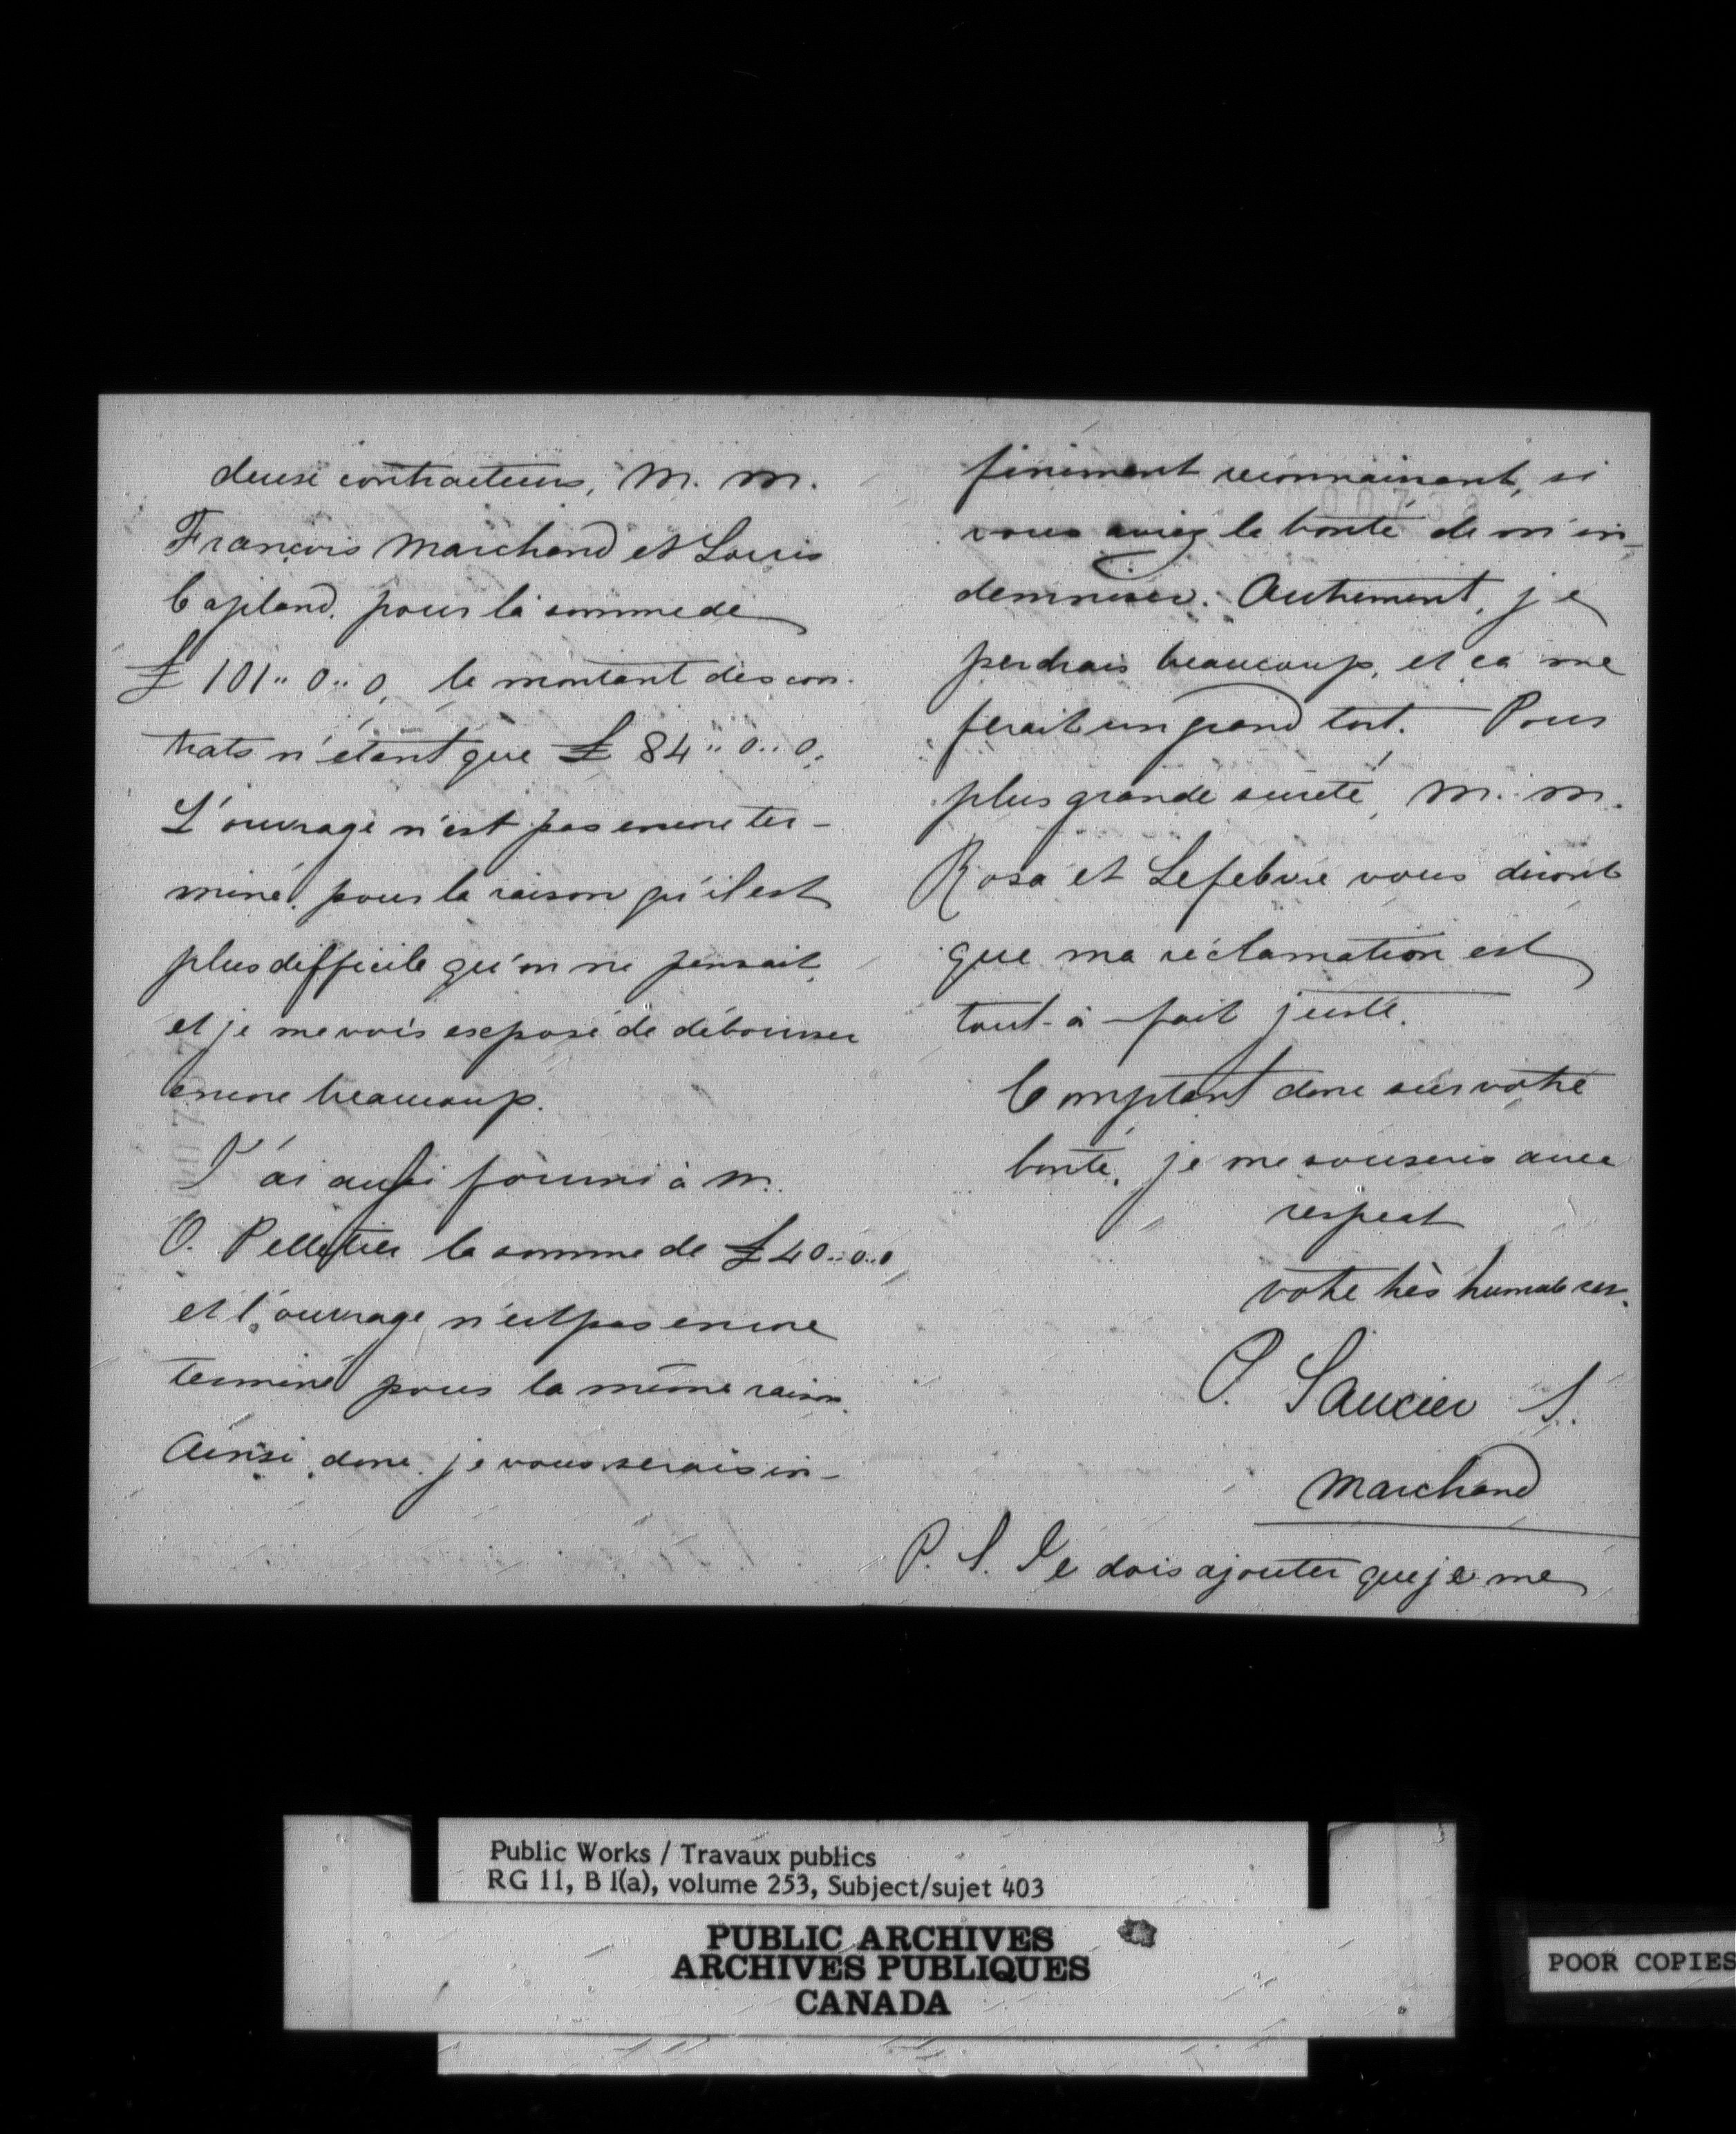 deux contracteurs, M. M.
François Marchand et Louis
Capland, pour la somme de
£ 101 .. 0 .. 0, le montant des con-
trats n'étant que £ 84 .. 0 .. 0.
L'ouvrage n'est pas encore ter-
miné, pour la raison qu'il est
plus difficile qu'on ne pensait,
et je me vois exposé de débourser
encore beaucoup.
J'ai aussi fourni à M.
O. Pelletier la somme de £ 40 .. 0 .. 0
et l'ouvrage n'est pas encore
terminé pour la même raison.
Ainsi donc je vous serais in-
finiment reconnaissant, si
vous aviez la bonté de m'in-
demniser. Autrement, je
perdrais beaucoup, et ça me
ferait un grand tort. Pour
plus grande sureté, M. M.
Rosa et Lefebvre vous diront
que ma réclamation est
tout-à-fait juste.
Comptant donc sur votre
bonté, je me souscris avec
respect
votre très humble ser.
O. Saucier J.
Marchand
P. S. Je dois ajouter que je me
Public Works / Travaux publics
RG 11, B 1(a), volume 253, Subject/sujet 403
PUBLIC ARCHIVES
ARCHIVES PUBLIQUES
CANADA
POOR COPIES